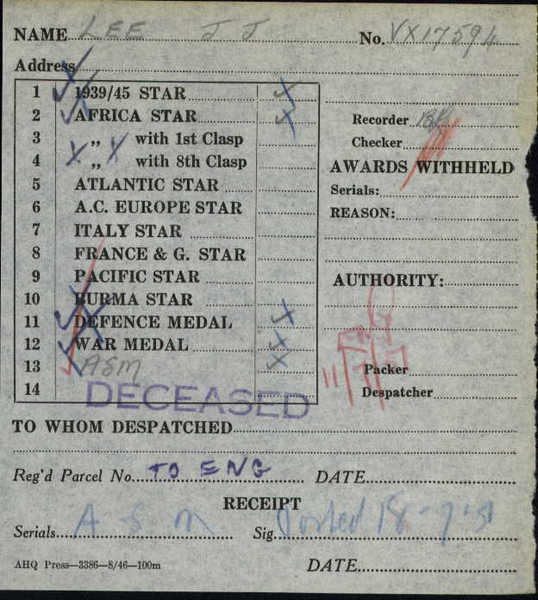 NAME LEE J J No. VX17594
Address
1 1939/45 STAR
2 AFRICA STAR
3 „ with 1st Clasp
4 „ with 8th Clasp
5 ATLANTIC STAR
6 A.C. EUROPE STAR
7 ITALY STAR
8 FRANCE & G. STAR
9 PACIFIC STAR
10 BURMA STAR
11 DEFENCE MEDAL
12 WAR MEDAL
13 ASM
14
DECEASED
Recorder
Checker
AWARDS WITHHELD
Serials:
REASON:
AUTHORITY:
Packer
Despatcher
TO WHOM DESPATCHED
Reg'd Parcel No. TO ENG DATE
RECEIPT
Serials A S M Sig. Posted 18-9-51
AHQ Press—3386—8/46—100m DATE